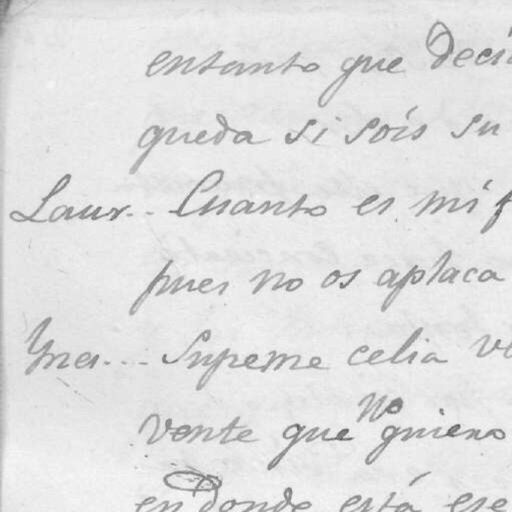 entanto que decí
queda si sois su
Laur.. Cuanto es mí
pues no os aplaca
Ynes... Supeme celia
vente que no quiero
en donde está ese